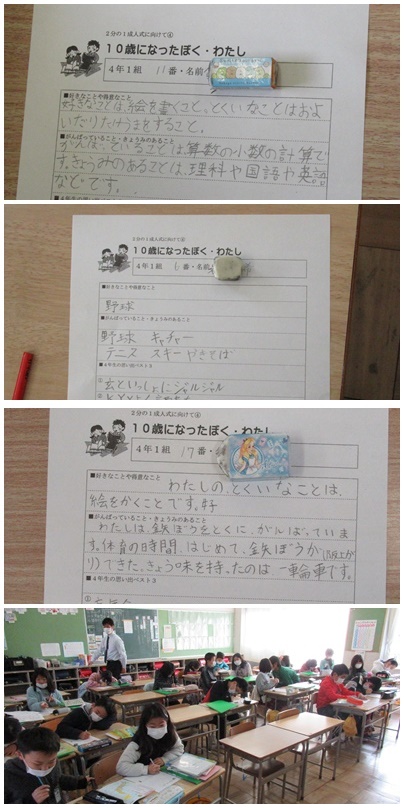 2分の1成人式に向けて④
10歳になったぼく・わたし
4年1組 11番・名前
■好きなことや得意なこと
好きなことは、絵を書くこと、とくいなことはおよ
いだり
すること。
■がんばっていること・きょうみのあること
がんばっていることは、算数の小数の計算で
す。きょうみのあることは、理科や国語や英語
などです。
■4年生の思い出ベスト3
2分の1成人式に向けて④
10歳になったぼく・わたし
4年1組 番・名前
■好きなことや得意なこと
野球
■がんばっていること・きょうみのあること
野球 キャチャー
テニス スキー やきそば
■4年生の思い出ベスト3
①
2分の1成人式に向けて④
10歳になったぼく・わたし
4年1組 17番
■好きなことや得意なこと
わたしの、とくいなことは、
絵をかくことです。好
■がんばっていること・きょうみのあること
わたしは、鉄ぼうをとくに、がんばっていま
す。体育の時間、はじめて、鉄ぼうが
りできた。きょう味を持ったのは一輪車です。
■4年生の思い出ベスト3